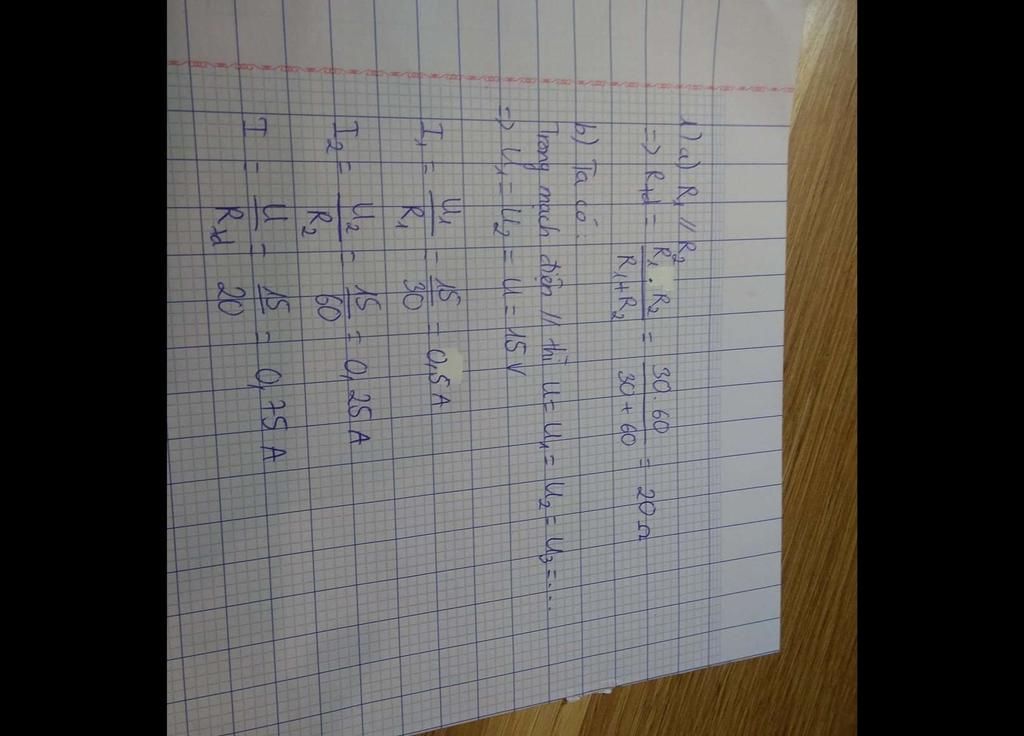 1) a) R₁ // R₂
=> Rtđ = \frac{R₁ . R₂}{R₁ + R₂} = \frac{30 . 60}{30 + 60} = 20 Ω
b) Ta có:
Trong mạch điện // thì U = U₁ = U₂ = U₃ = ...
=> U₁ = U₂ = U = 15 V
I₁ = \frac{U₁}{R₁} = \frac{15}{30} = 0,5 A
I₂ = \frac{U₂}{R₂} = \frac{15}{60} = 0,25 A
I = \frac{U}{Rtđ} = \frac{15}{20} = 0,75 A